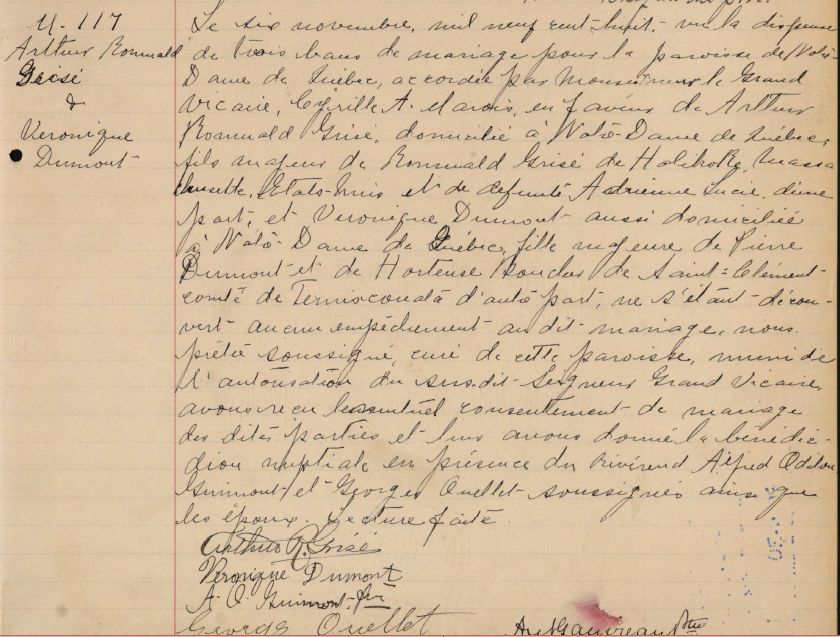 M. 117
Arthur Romuald
Grisé
&
Veronique
Dumont
Le six novembre, mil neuf cent huit, vu la dispense
de trois bans de mariage pour la paroisse de Notre-
Dame de Québec, accordée par Monseigneur le Grand
Vicaire, Cyrille A. Marois, en faveur de Arthur
Romuald Grisé, domicilié à Notre-Dame de Québec,
fils majeur de Romuald Grisé de Holihoke, Massa
chusette, Etats-Unis et de defunte Adrienne Lucie, d'une
part, et Veronique Dumont aussi domiciliée
à Notre-Dame de Québec, fille majeure de Pierre
Dumont et de Hortense Boucher de Saint-Clément
comté de Temiscouata d'autre part, ne s'étant décou-
vert aucun empêchement au dit mariage, nous
prêtre soussigné, curé de cette paroisse, muni de
l'autorisation du susdit Seigneur Grand Vicaire,
avons reçu le mutuel consentement de mariage
des dites parties et leur avons donné la bénédic-
tion nuptiale en présence du Révérend Alfred Odilon
Guimont et Georges Ouellet soussignés ainsi que
les époux. Lecture faite.
Arthur R. Grisé
Veronique Dumont
A. O. Guimont, ptre
Georges Ouellet
Ant Gauvreau Ptre